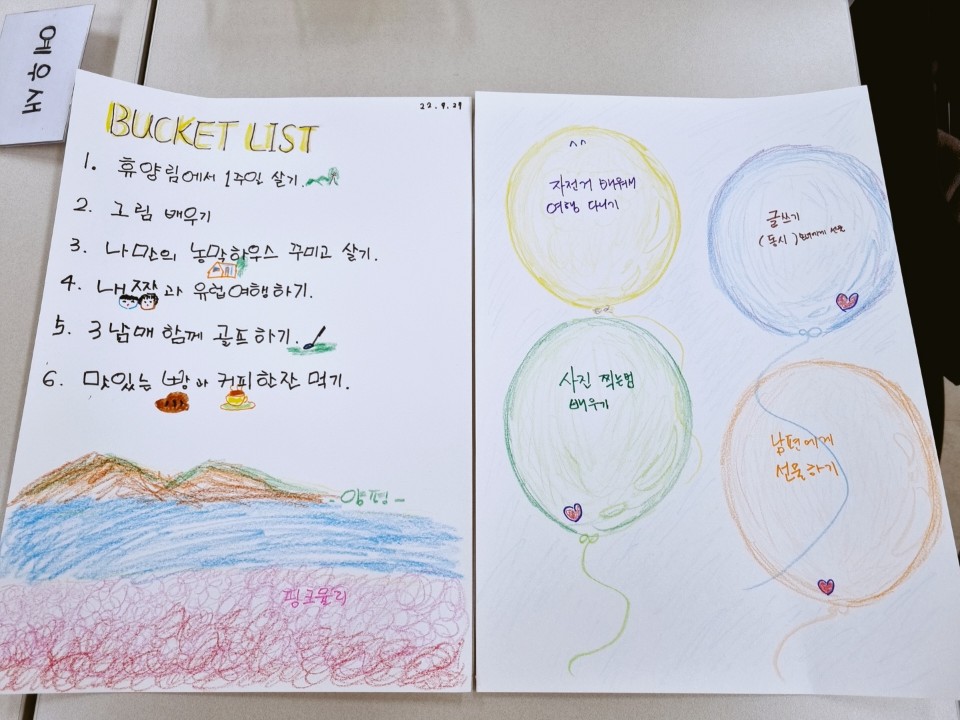 예우새
22.9.29
BUCKET LIST
1. 휴양림에서 1주일 살기.
2. 그림 배우기
3. 나만의 농막하우스 꾸미고 살기.
4. 내짝과 유럽여행하기.
5. 3남매 함께 골프하기.
6. 맛있는 빵과 커피한잔 먹기.
-양평-
핑크뮬리
^^
자전거 배워서
여행 다니기
글쓰기
(동시)
사진 찍는법
배우기
남편에게
선물하기